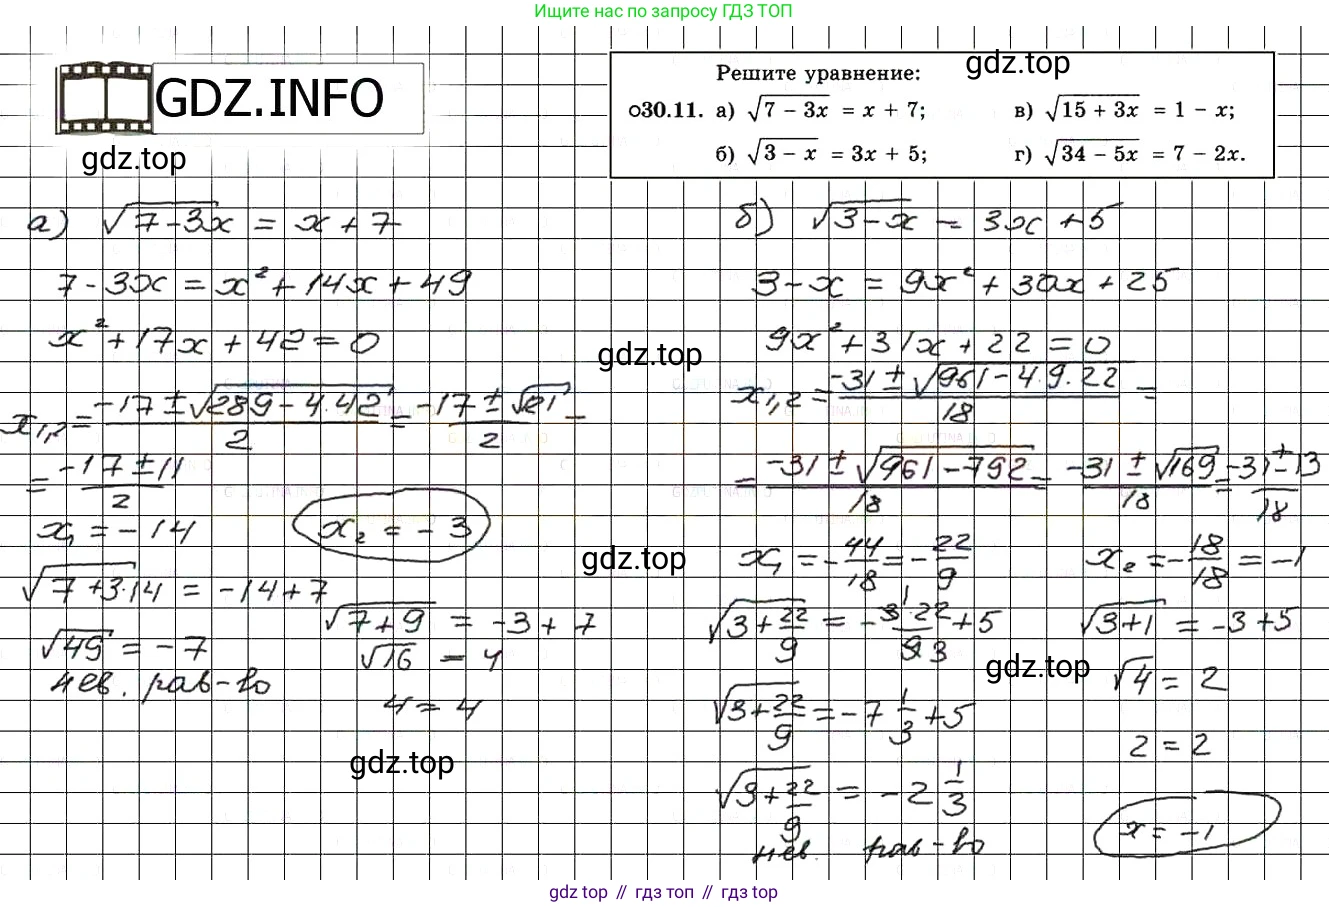 Ищите нас по запросу ГДЗ ТОП
GDZ.INFO
gdz.top
Решите уравнение:
gdz.top
о30.11. а) √(7 − 3x) = x + 7;
в) √(15 + 3x) = 1 − x;
б) √(3 − x) = 3x + 5;
г) √(34 − 5x) = 7 − 2x.
а) √(7-3x) = x + 7
7 - 3x = x² + 14x + 49
x² + 17x + 42 = 0
gdz.top
x₁,₂ = (-17 ± √(289 - 4·42))/2 = (-17 ± √21)/2 =
= (-17 ± 11)/2
x₁ = -14
x₂ = -3
√(7+3·14) = -14+7
√49 = -7
нев. рав-во
√(7+9) = -3 + 7
√16 = 4
4 = 4
gdz.top
б) √(3-x) = 3x + 5
3 - x = 9x² + 30x + 25
9x² + 31x + 22 = 0
x₁,₂ = (-31 ± √(961 - 4·9·22))/18 =
= (-31 ± √(961 - 792))/18 = (-31 ± √169)/18 = (-31 ± 13)/18
gdz.top
x₁ = -44/18 = -22/9
x₂ = -18/18 = -1
√(3 + 22/9) = -3·22/9 + 5
1
3
√(3 + 22/9) = -7 1/3 + 5
√(3 + 22/9) = -2 1/3
нев. рав-во
√(3+1) = -3+5
gdz.top
√4 = 2
2 = 2
x = -1
gdz top // гдз топ // гдз top